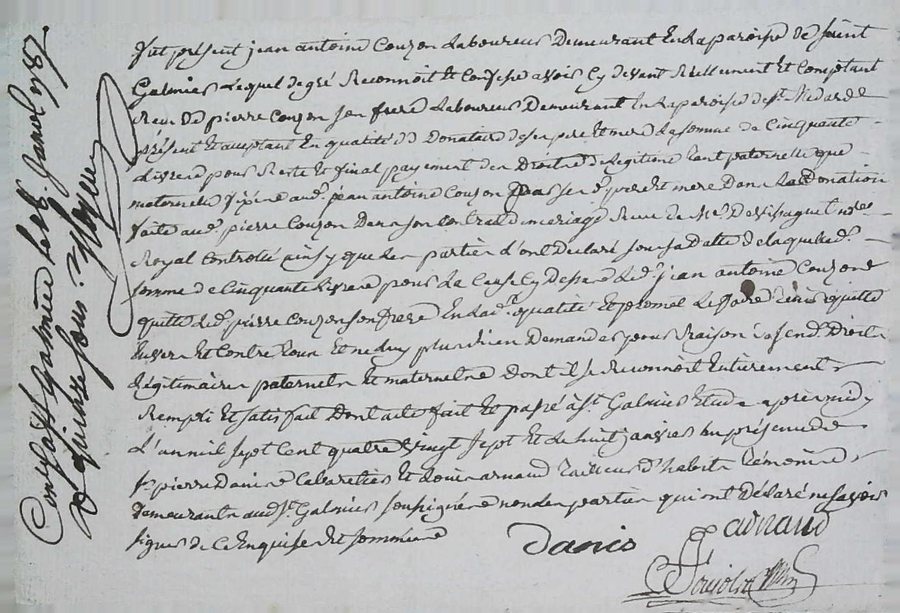 fut présent jean antoine Couzon Laboureur Demeurant En La paroisse de Saint
Galmier Lequel de gré Reconnoit Et Confesse avoir Cy devant Réellement Et Comptant
Receu De pierre Couzon son frere Laboureur Demeurant En La paroisse de St Medard
présent Et acceptant En qualité de Donataire de ses pere Et mere La somme de Cinquante
Livres pour Reste Et final payement des Droits de Legitime tant paternelle que
maternelle fixée aud. jean antoine Couzon par sesd. pere et mere Dans La Donation
faite aud. pierre Couzon Dans son Contrat de mariage Receu de Me notre
Royal Controllé ainsy que Les parties L'ont Declaré sous sa Datte De laquelle d.
somme de Cinquante Livres pour La Cause Cy Dessus Led. jean antoine Couzon
quitte Led. pierre Couzon son frere En Lad. qualité Et promet Le faire tenir quitte
Envers Et Contre tous Et ne luy plus Rien Demander pour Raison de sesd. Droits
Légitimaires paternels Et maternels Dont il se Reconnoit Entierement
Rempli Et satisfait Dont acte fait Et passé à St. Galmier Etude après midy
L'an mil sept Cent quatre vingt sept Et Le huit janvier En présence de
Sr pierre Danis Cabaretier Et arnaud tailleur d'habits témoins
Demeurants aud. St. Galmier soussignés non les parties qui ont Déclaré ne savoir
signer de ce Enquises Et sommées
Danis
arnaud
Con. à St Galmier le 18 Janv. 1787
R quinze sous